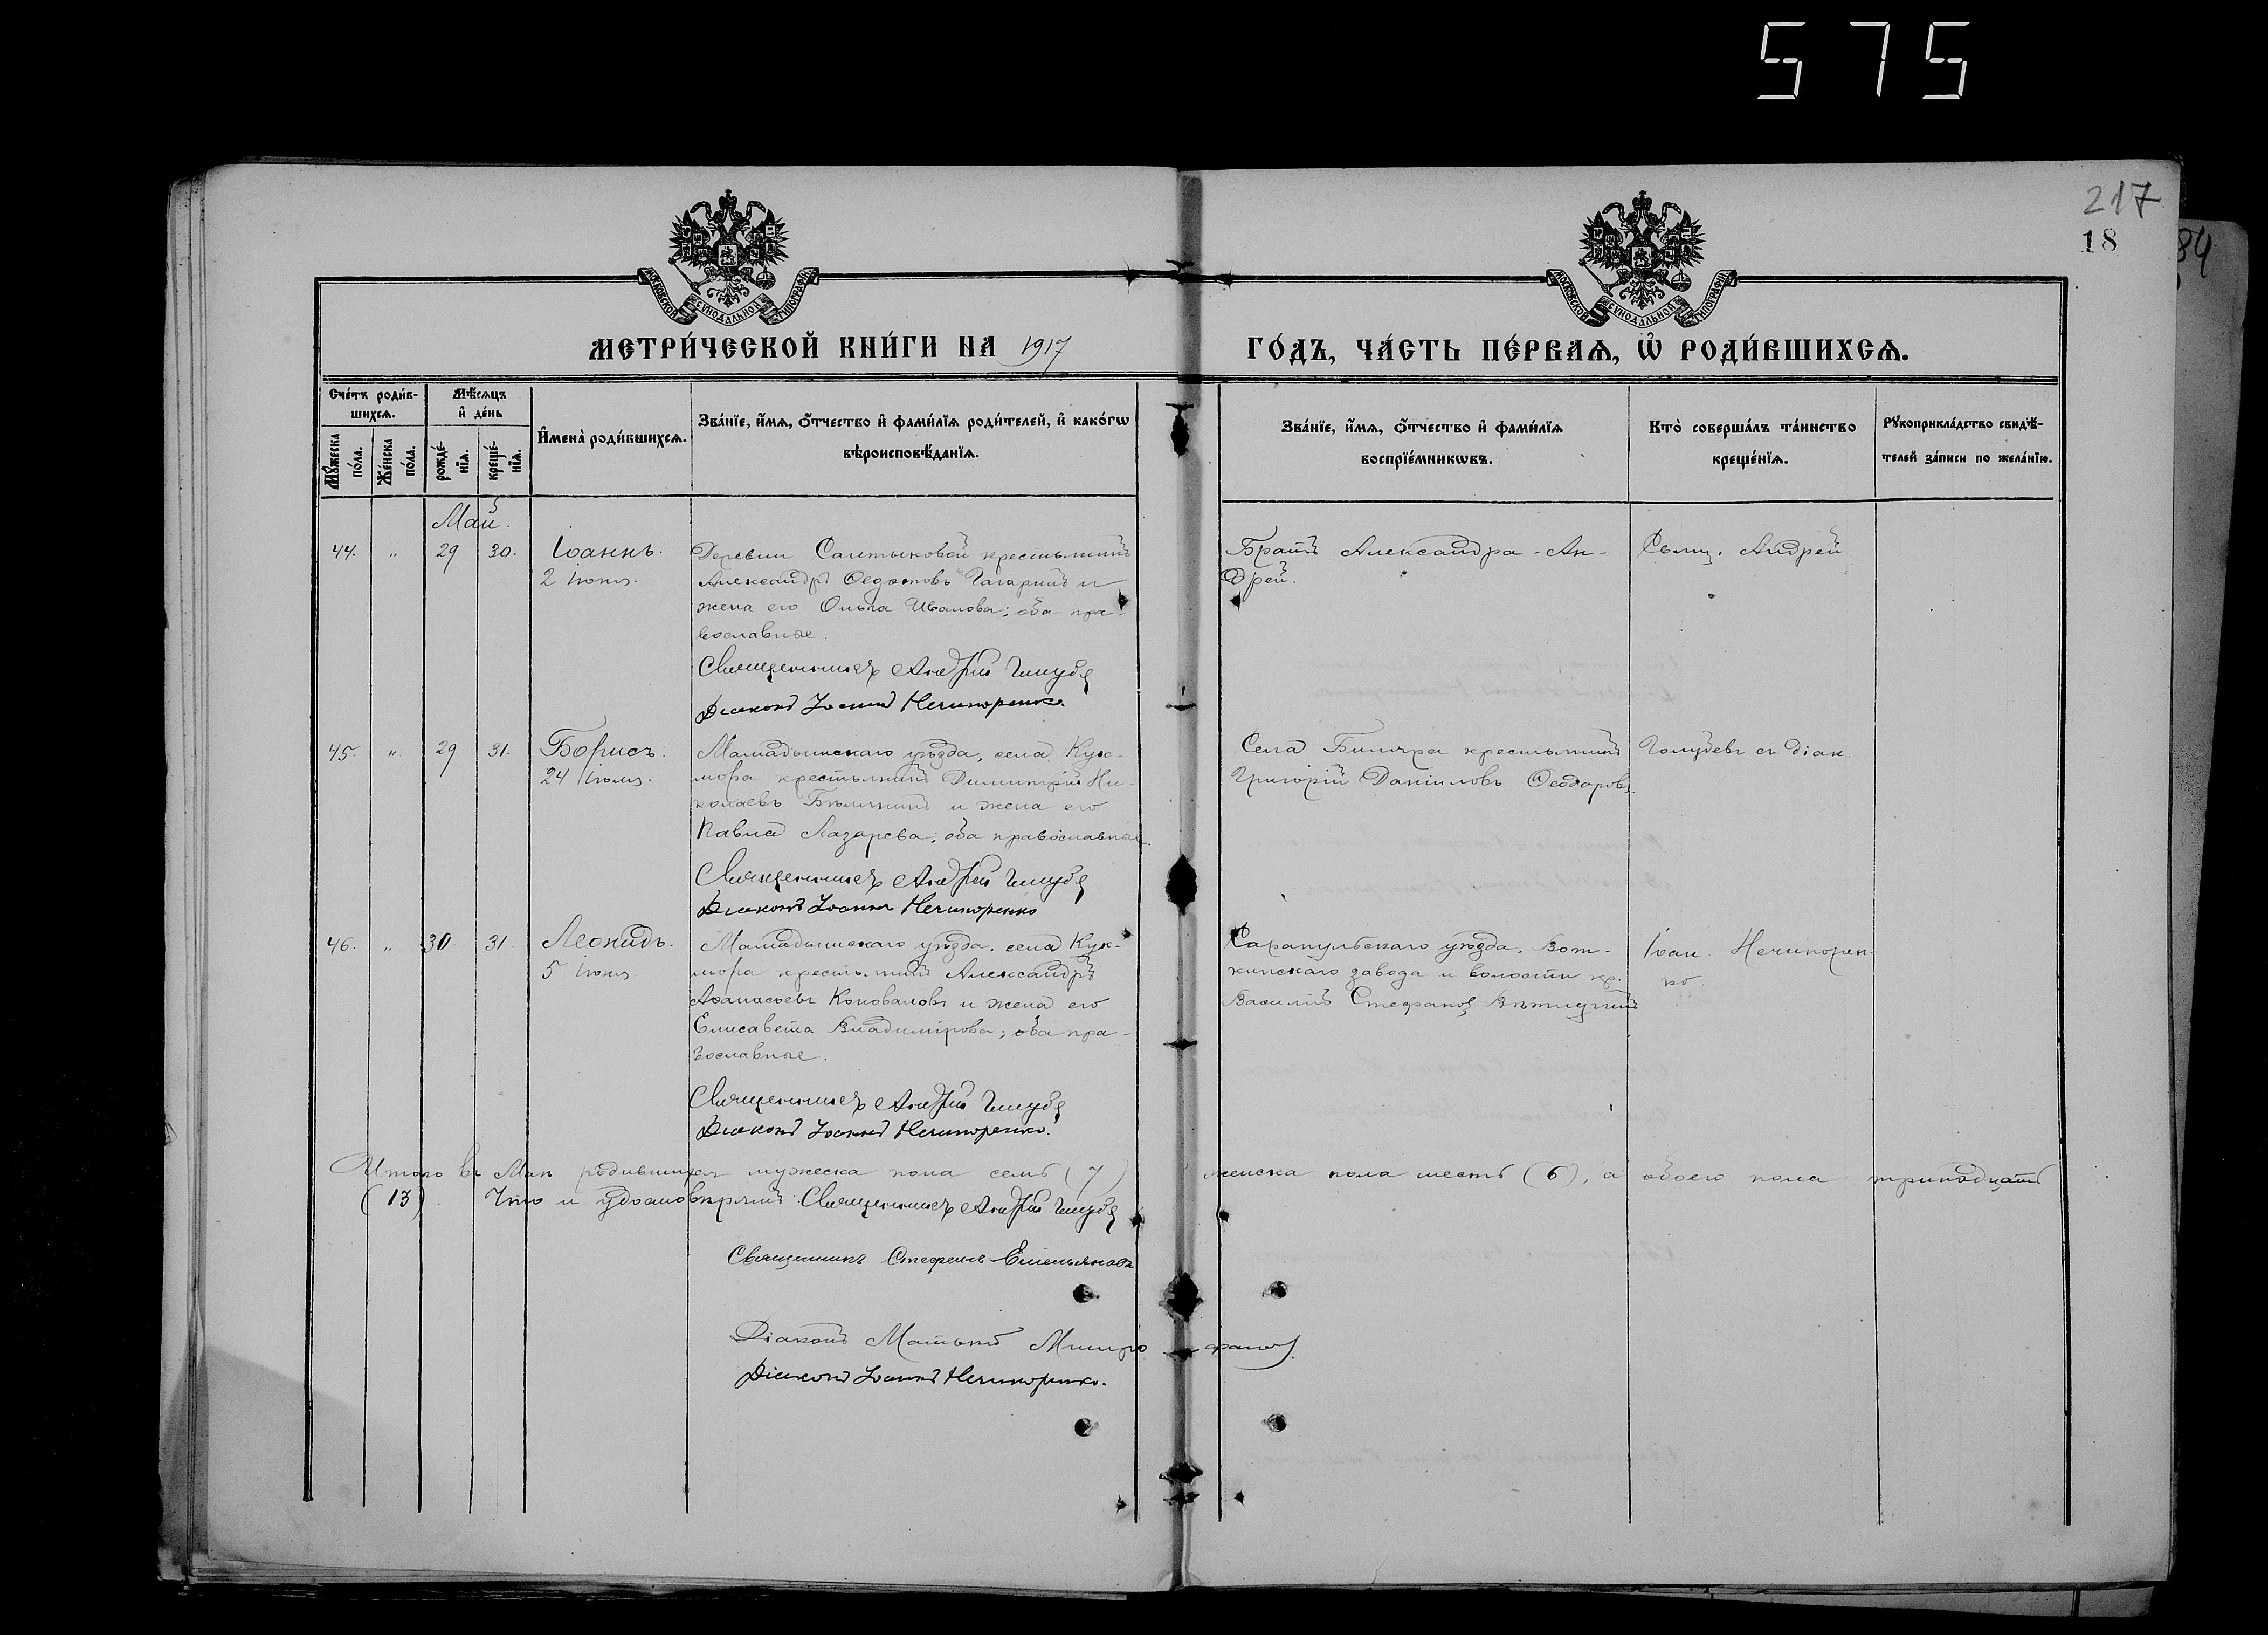 575
217
18
84
МОСКОВСКОЙ СѴНОДАЛЬНОЙ ТИПОГРАФІИ
МОСКОВСКОЙ СѴНОДАЛЬНОЙ ТИПОГРАФІИ
МЕТРИ́ЧЕСКОЙ КНИ́ГИ НА 1917
ГО́ДЪ, ЧА́СТЬ ПЕ́РВАѦ, Ѡ҆ РОДИ́ВШИХСѦ.
Сче́тъ роди́в-
шихсѧ.
Мꙋ́жеска
по́ла.
Же́нска
по́ла.
Мѣ́сѧцъ
и҆ де́нь
рожде́-
нїѧ.
креще́-
нїѧ.
И҆мена̀ роди́вшихсѧ.
Зва́нїе, и҆́мѧ, ѻ҆́тчество и҆ фами́лїѧ роди́телей, и҆ како́гѡ
вѣроисповѣ́данїѧ.
Зва́нїе, и҆́мѧ, ѻ҆́тчество и҆ фами́лїѧ
воспрїе́мникѡвъ.
Кто̀ соверша́лъ та́инство
креще́нїѧ.
Рꙋкоприкла́дство свидѣ́-
телей за́писи по жела́нїю.
Май.
44. „ 29 30.
Іоаннъ.
2 Іюня.
Деревни Салтыковой крестьянинъ
Александръ Гагаринъ и
жена его Ольга Иванова; оба пра-
вославные.
Священникъ Андрей Голубе
Діаконъ Іоаннъ Нечипоренко.
Братъ Александра - Ан-
дрей.
Свящ. Андрей
45. „ 29 31.
Борисъ.
24 Іюля.
Мамадышскаго уѣзда, села Кук-
мора крестьянинъ Димитрій Ни-
колаевъ и жена его
Павла Лазарева; оба православные.
Священникъ Андрей Голубе
Діаконъ Іоаннъ Нечипоренко
Села крестьянинъ
Григорій Даніиловъ Ѳеодоровъ.
Голубевъ съ діак.
46. „ 30 31.
Леонидъ.
5 Іюня
Мамадышскаго уѣзда, села Кук-
мора крестьянинъ Александръ
Аѳанасьевъ Коноваловъ и жена его
Елисавета Владимірова; оба пра-
вославные.
Священникъ Андрей Голубе
Діаконъ Іоаннъ Нечипоренко.
Сарапульскаго уѣзда, Вот-
кинскаго завода и волости кр.
Василій Стефановъ
Іоан. Нечипорен-
ко.
Итого въ Маѣ родившихся мужеска пола семь (7) женска пола шесть (6), а обоего пола тринадцать
(13). Что и удостовѣряемъ: Священникъ Андрей Голубе
Священникъ Стефанъ Емельяновъ
Діаконъ Матѳей Митрофановъ.
Діаконъ Іоаннъ Нечипоренко.